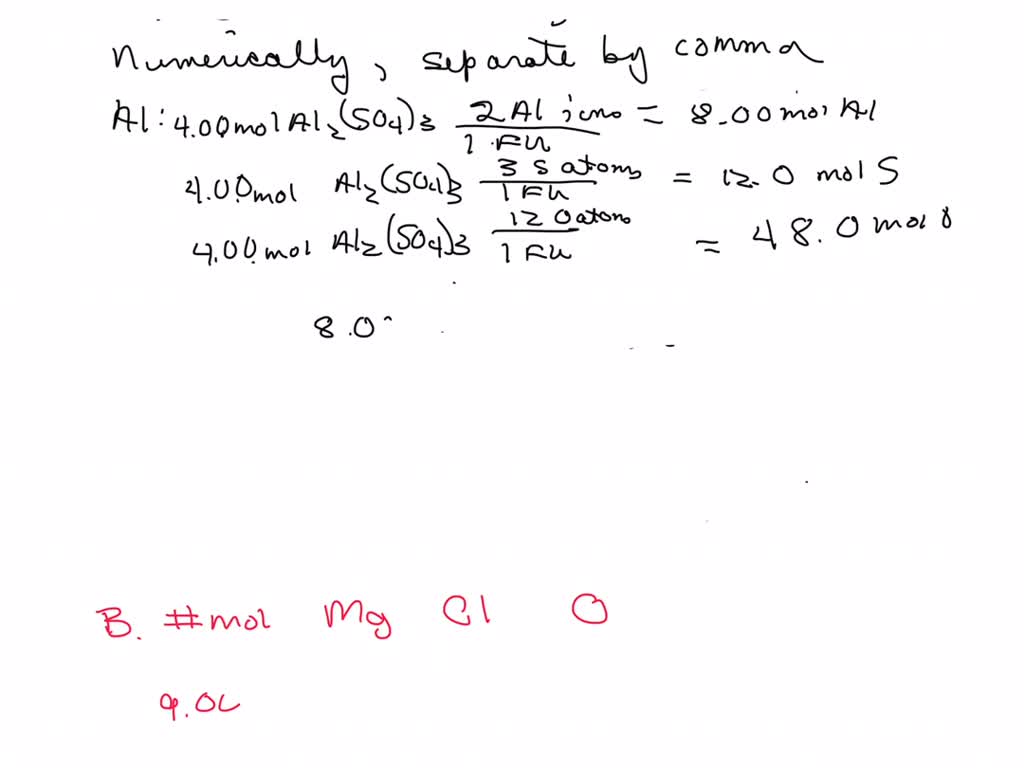 Numerically, separate by comma
Al: 4.00mol Al2(SO4)3 2 Al ions / 1 FU = 8.00 mol Al
4.00mol Al2(SO4)3 3 S atoms / 1 FU = 12.0 mol S
4.00mol Al2(SO4)3 12 O atoms / 1 FU = 48.0 mol O
8.0
B. #mol Mg Cl O
9.0